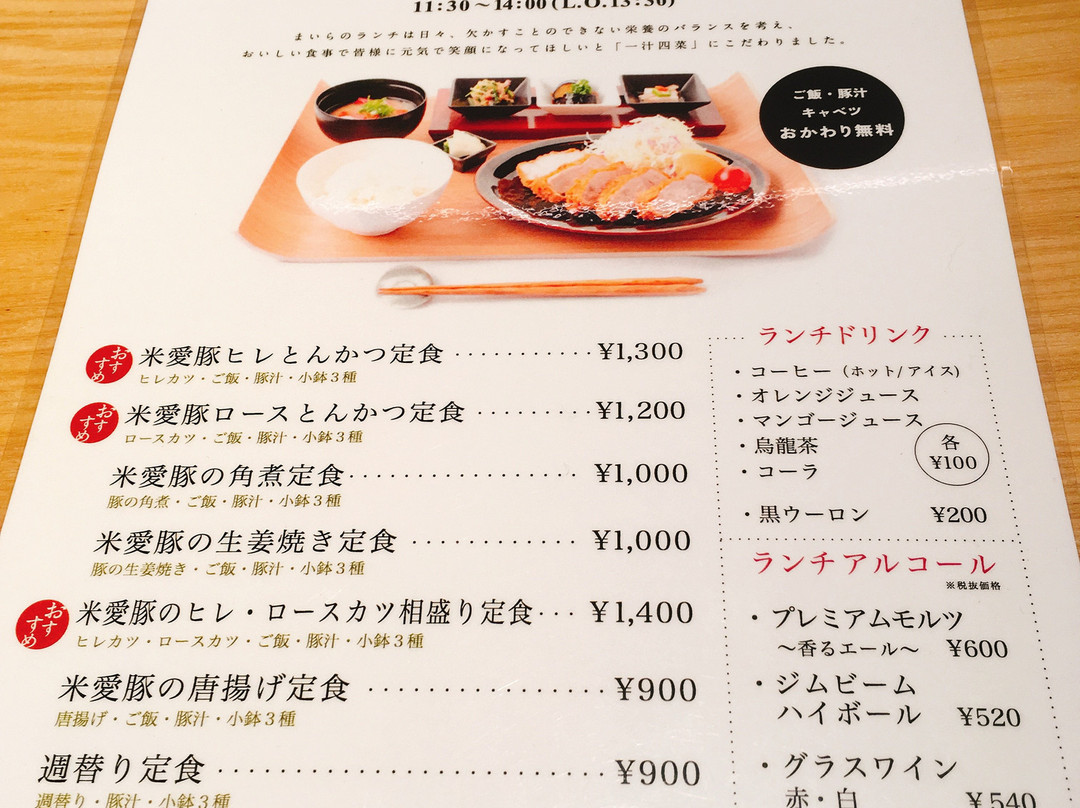 11:30～14:00(L.O.13:30)
まいらのランチは日々、欠かすことのできない栄養のバランスを考え、
おいしい食事で皆様に元気で笑顔になってほしいと「一汁四菜」にこだわりました。
ご飯・豚汁
キャベツ
おかわり無料
おすすめ
米愛豚ヒレとんかつ定食 ············ ¥1,300
ヒレカツ・ご飯・豚汁・小鉢３種
おすすめ
米愛豚ロースとんかつ定食 ·········· ¥1,200
ロースカツ・ご飯・豚汁・小鉢３種
米愛豚の角煮定食 ·················· ¥1,000
豚の角煮・ご飯・豚汁・小鉢３種
米愛豚の生姜焼き定食 ············ ¥1,000
豚の生姜焼き・ご飯・豚汁・小鉢３種
おすすめ
米愛豚のヒレ・ロースカツ相盛り定食 ··· ¥1,400
ヒレカツ・ロースカツ・ご飯・豚汁・小鉢３種
米愛豚の唐揚げ定食 ················ ¥900
唐揚げ・ご飯・豚汁・小鉢３種
週替り定食 ·························· ¥900
週替り・豚汁・小鉢３種
ランチドリンク
・コーヒー（ホット/アイス)
・オレンジジュース
・マンゴージュース
・烏龍茶
・コーラ
各
¥100
・黒ウーロン ¥200
ランチアルコール
※税抜価格
・プレミアムモルツ
～香るエール～ ¥600
・ジムビーム
ハイボール ¥520
・グラスワイン
赤・白 ¥540